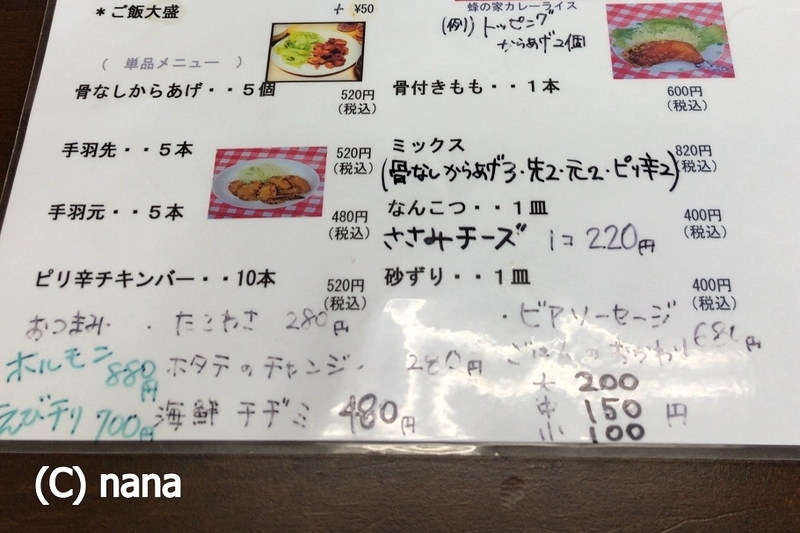 ＊ご飯大盛 + ¥50
蜂の家カレーライス
(例) トッピング
からあげ2個
( 単品メニュー )
骨なしからあげ・・５個 520円
(税込)
骨付きもも・・１本 600円
(税込)
手羽先・・５本 520円
(税込)
ミックス 820円
(税込)
(骨なしからあげ3・先2・元2・ピリ辛2)
手羽元・・５本 480円
(税込)
なんこつ・・１皿 400円
(税込)
ささみチーズ 1コ 220円
ピリ辛チキンバー・・10本 520円
(税込)
砂ずり・・１皿 400円
(税込)
おつまみ・・たこわさ 280円
・ビアソーセージ 680円
ホルモン 880円
ホタテのチャンジャ 280円
ごはんのおかわり
大 200
中 150 円
小 100
えびチリ 700円
海鮮チヂミ 480円
(C) nana